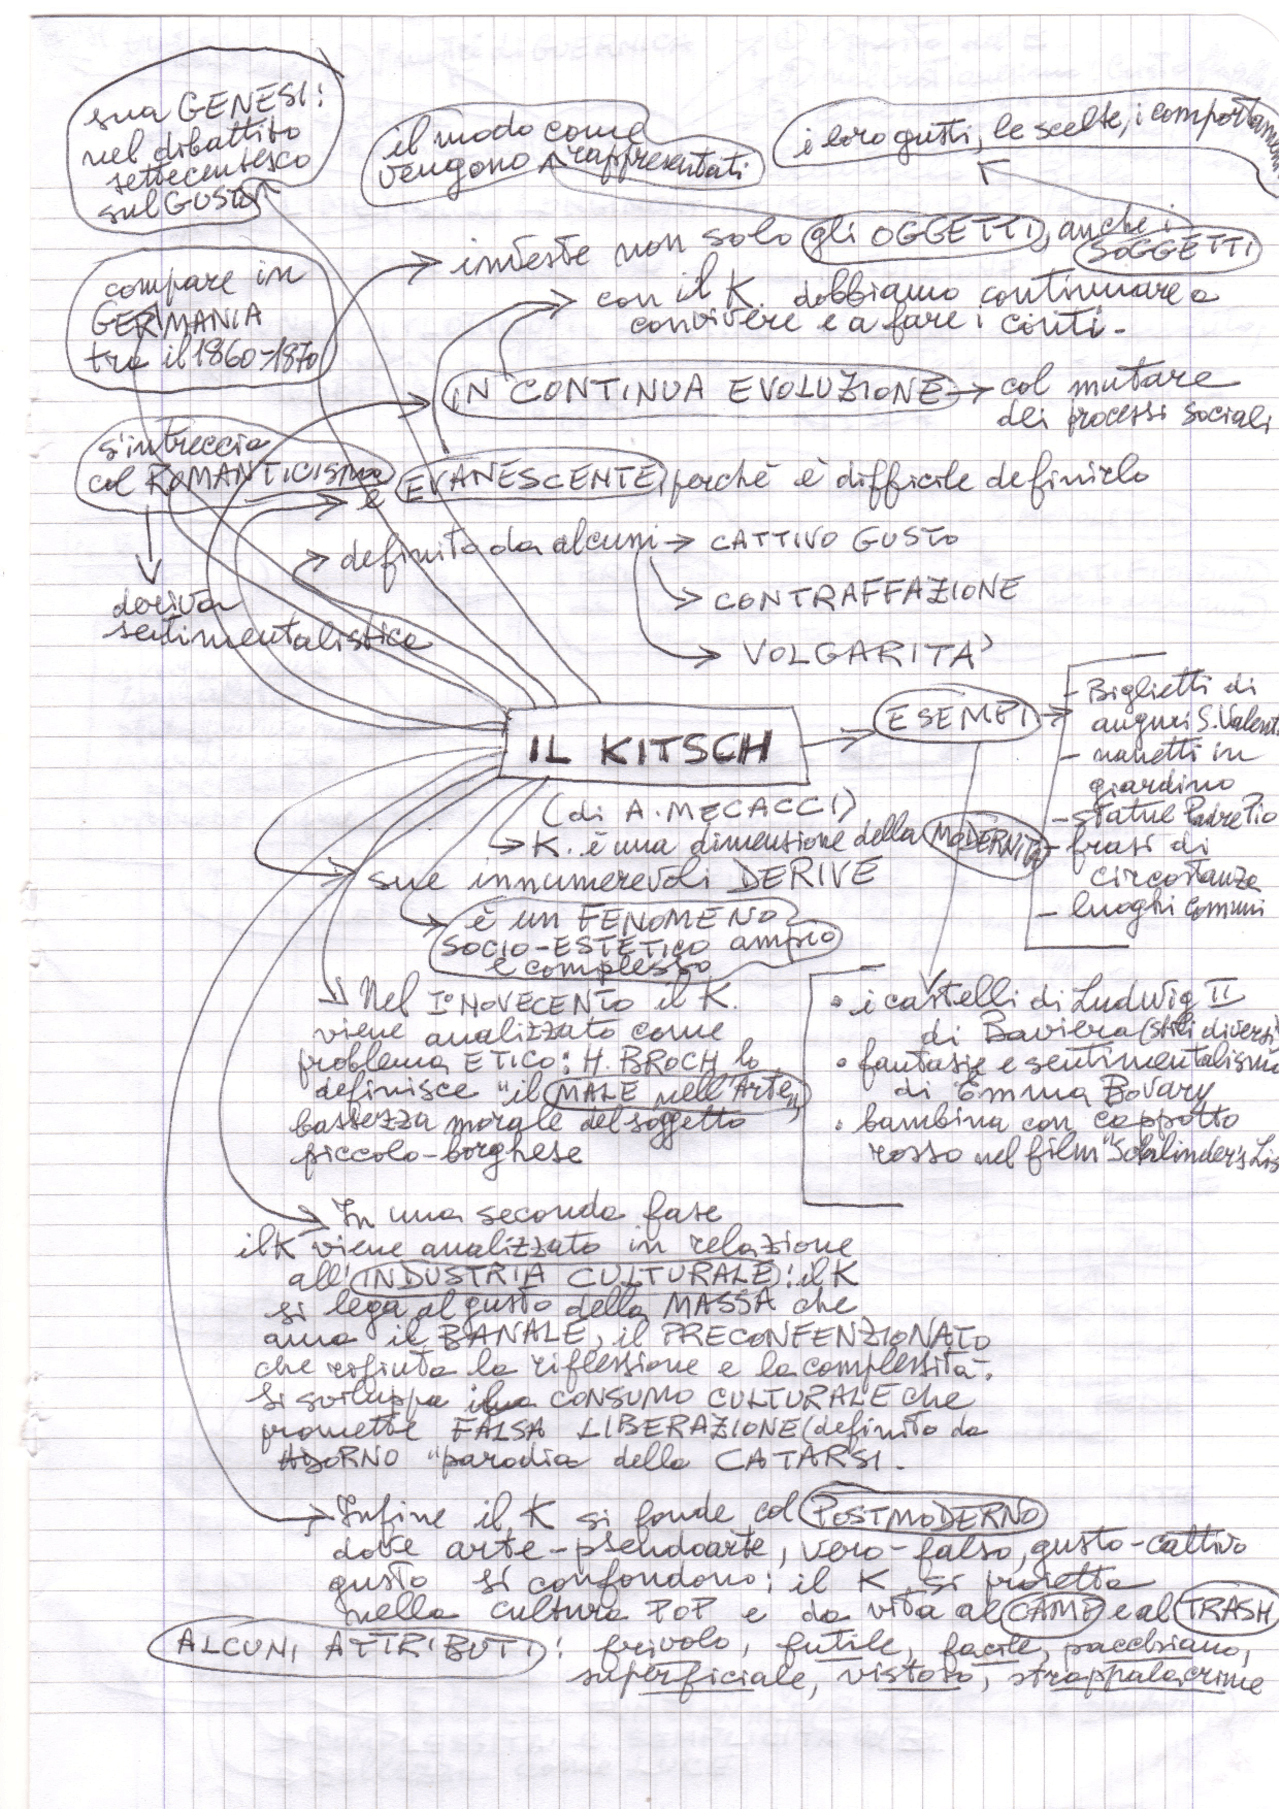 sua GENESI:
nel dibattito
settecentesco
sul GUSTO
il modo come
vengono rappresentati
i loro gusti, le scelte, i comportamenti
investe non solo gli OGGETTI, anche i
SOGGETTI
compare in
GERMANIA
tra il 1860-1870
con il K. dobbiamo continuare a
convivere e a fare i conti.
IN CONTINUA EVOLUZIONE → col mutare
dei processi sociali
s'intreccia
col ROMANTICISMO
è EVANESCENTE, perchè è difficile definirlo
definito da alcuni → CATTIVO GUSTO
CONTRAFFAZIONE
VOLGARITA'
deriva
sentimentalistica
IL KITSCH
(di A. MECACCI)
ESEMPI
- Biglietti di
auguri S. Valent
- nanetti in
giardino
- statue Padre Pio
- frasi di
circostanza
- luoghi comuni
K. è una dimensione della MODERNITA
sue innumerevoli DERIVE
è un FENOMENO
SOCIO-ESTETICO ampio
e complesso
• i castelli di Ludwig II
di Baviera (stili diversi
• fantasie e sentimentalismo
di Emma Bovary
• bambina con cappotto
rosso nel film "Schlinder's Lis
Nel I° NOVECENTO il K.
viene analizzato come
problema ETICO: H. BROCH lo
definisce "il MALE nell'Arte",
bassezza morale del soggetto
piccolo-borghese
In una seconda fase
il K viene analizzato in relazione
all'INDUSTRIA CULTURALE: il K
si lega al gusto della MASSA che
ama il BANALE, il PRECONFENZIONATO
che rifiuta la riflessione e la complessità.
Si sviluppa un CONSUMO CULTURALE che
promette FALSA LIBERAZIONE (definito da
ADORNO "parodia della CATARSI.
Infine il K si fonde col POSTMODERNO
dove arte-pseudoarte, vero-falso, gusto-cattivo
gusto si confondono; il K si proietta
nella cultura POP e da vita al CAMP e al TRASH
ALCUNI ATTRIBUTI: frivolo, futile, facile, pacchiano,
superficiale, vistoso, strappalacrime